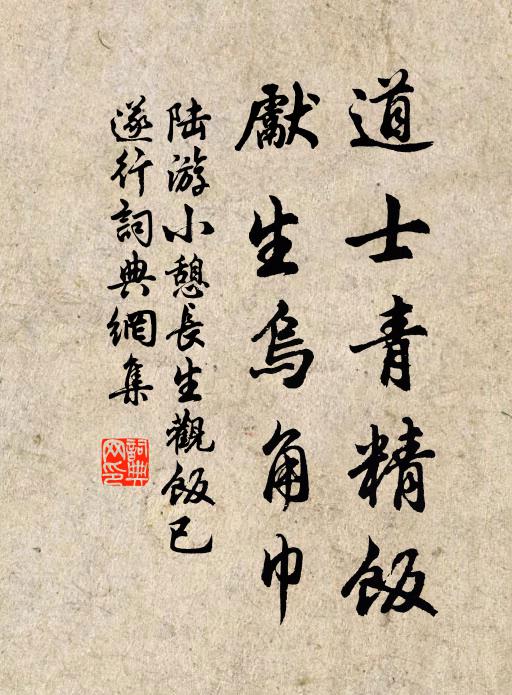 道士青精飯
獻生烏角巾
陆游小憩長生觀飯已
遂行詞典網集
詞典
网印